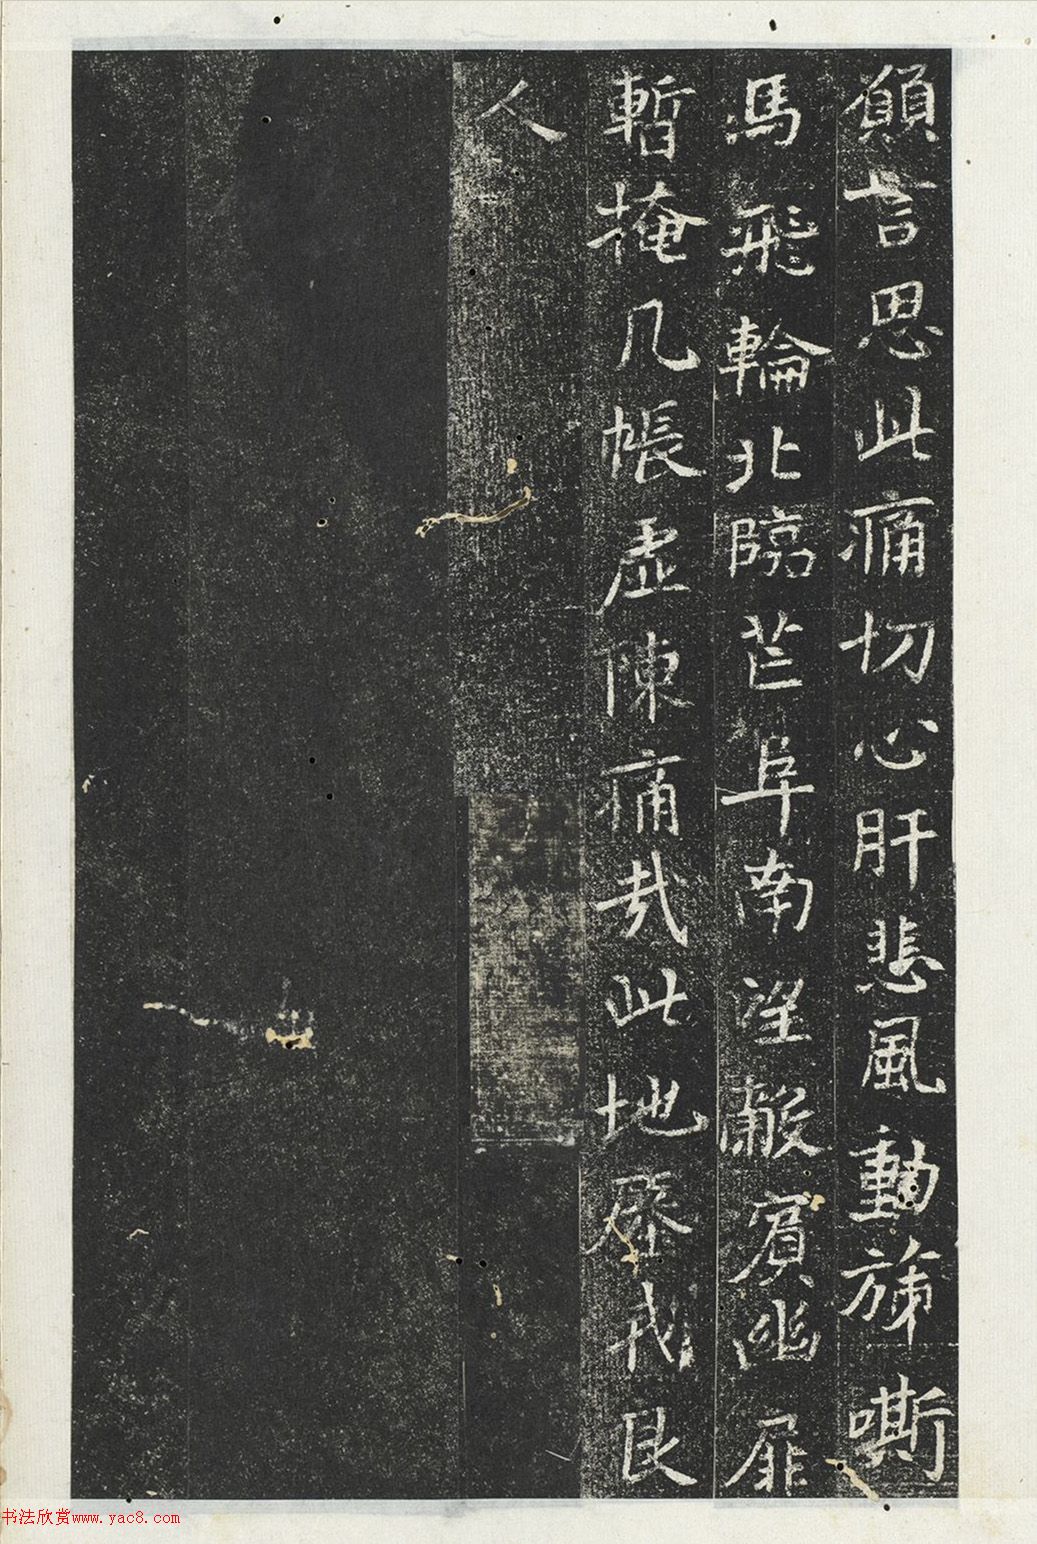 願言思此痛切心肝悲風動旆嘶
馬飛輪北臨芒阜南望瀍濱幽扉
暫掩几帳虛陳痛哉此地殲我良
人
书法欣赏www.yac8.com